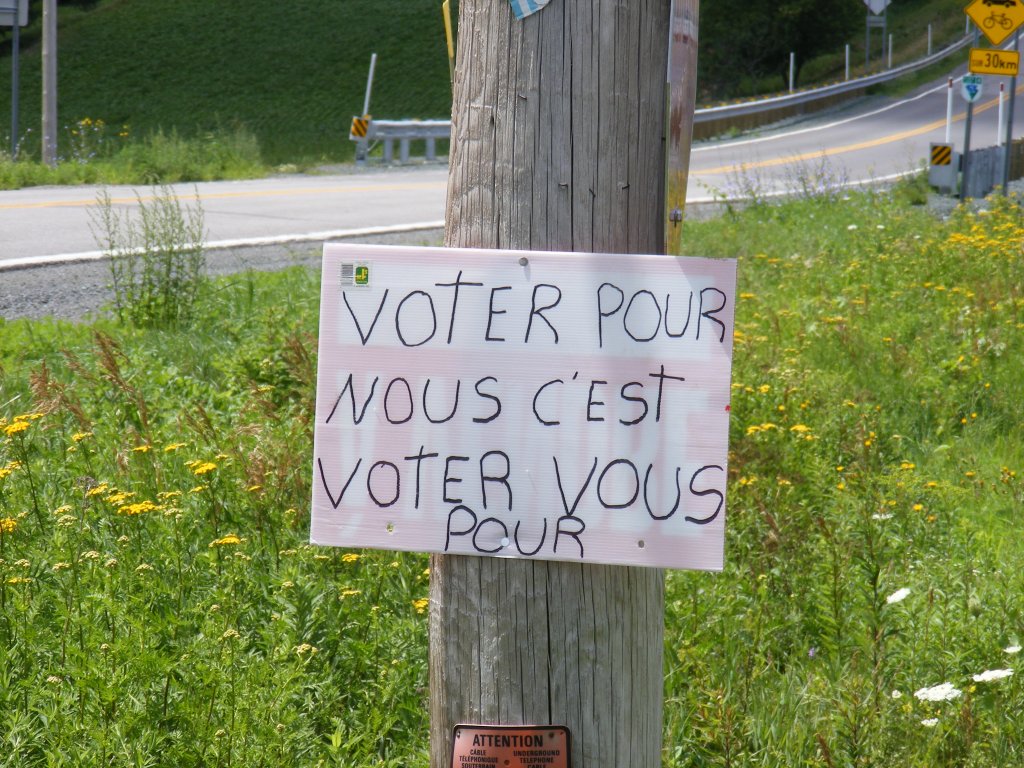 VOTER POUR
NOUS C'EST
VOTER VOUS
POUR
ATTENTION
CÂBLE TÉLÉPHONIQUE SOUTERRAIN
UNDERGROUND TELEPHONE CABLE
30km